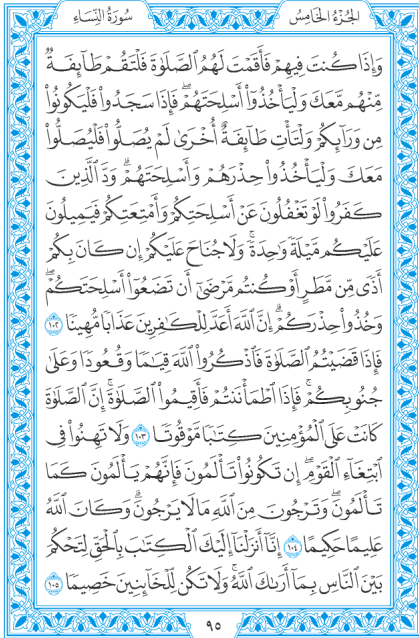 سُورَةُ النِّسَاءِ الجُزْءُ الخَامِسُ
وَإِذَا كُنتَ فِيهِمْ فَأَقَمْتَ لَهُمُ ٱلصَّلَوٰةَ فَلْتَقُمْ طَآئِفَةٌ
مِّنْهُم مَّعَكَ وَلْيَأْخُذُوٓا۟ أَسْلِحَتَهُمْ ۖ فَإِذَا سَجَدُوا۟ فَلْيَكُونُوا۟
مِن وَرَآئِكُمْ وَلْتَأْتِ طَآئِفَةٌ أُخْرَىٰ لَمْ يُصَلُّوا۟ فَلْيُصَلُّوا۟
مَعَكَ وَلْيَأْخُذُوا۟ حِذْرَهُمْ وَأَسْلِحَتَهُمْ ۗ وَدَّ ٱلَّذِينَ
كَفَرُوا۟ لَوْ تَغْفُلُونَ عَنْ أَسْلِحَتِكُمْ وَأَمْتِعَتِكُمْ فَيَمِيلُونَ
عَلَيْكُم مَّيْلَةً وَٰحِدَةً ۚ وَلَا جُنَاحَ عَلَيْكُمْ إِن كَانَ بِكُمْ
أَذًى مِّن مَّطَرٍ أَوْ كُنتُم مَّرْضَىٰٓ أَن تَضَعُوٓا۟ أَسْلِحَتَكُمْ ۖ
وَخُذُوا۟ حِذْرَكُمْ ۗ إِنَّ ٱللَّهَ أَعَدَّ لِلْكَٰفِرِينَ عَذَابًا مُّهِينًا ١٠٢
فَإِذَا قَضَيْتُمُ ٱلصَّلَوٰةَ فَٱذْكُرُوا۟ ٱللَّهَ قِيَٰمًا وَقُعُودًا وَعَلَىٰ
جُنُوبِكُمْ ۚ فَإِذَا ٱطْمَأْنَنتُمْ فَأَقِيمُوا۟ ٱلصَّلَوٰةَ ۚ إِنَّ ٱلصَّلَوٰةَ
كَانَتْ عَلَى ٱلْمُؤْمِنِينَ كِتَٰبًا مَّوْقُوتًا ١٠٣ وَلَا تَهِنُوا۟ فِى
ٱبْتِغَآءِ ٱلْقَوْمِ ۖ إِن تَكُونُوا۟ تَأْلَمُونَ فَإِنَّهُمْ يَأْلَمُونَ كَمَا
تَأْلَمُونَ ۖ وَتَرْجُونَ مِنَ ٱللَّهِ مَا لَا يَرْجُونَ ۗ وَكَانَ ٱللَّهُ
عَلِيمًا حَكِيمًا ١٠٤ إِنَّآ أَنزَلْنَآ إِلَيْكَ ٱلْكِتَٰبَ بِٱلْحَقِّ لِتَحْكُمَ
بَيْنَ ٱلنَّاسِ بِمَآ أَرَىٰكَ ٱللَّهُ ۚ وَلَا تَكُن لِّلْخَآئِنِينَ خَصِيمًا ١٠٥
٩٥